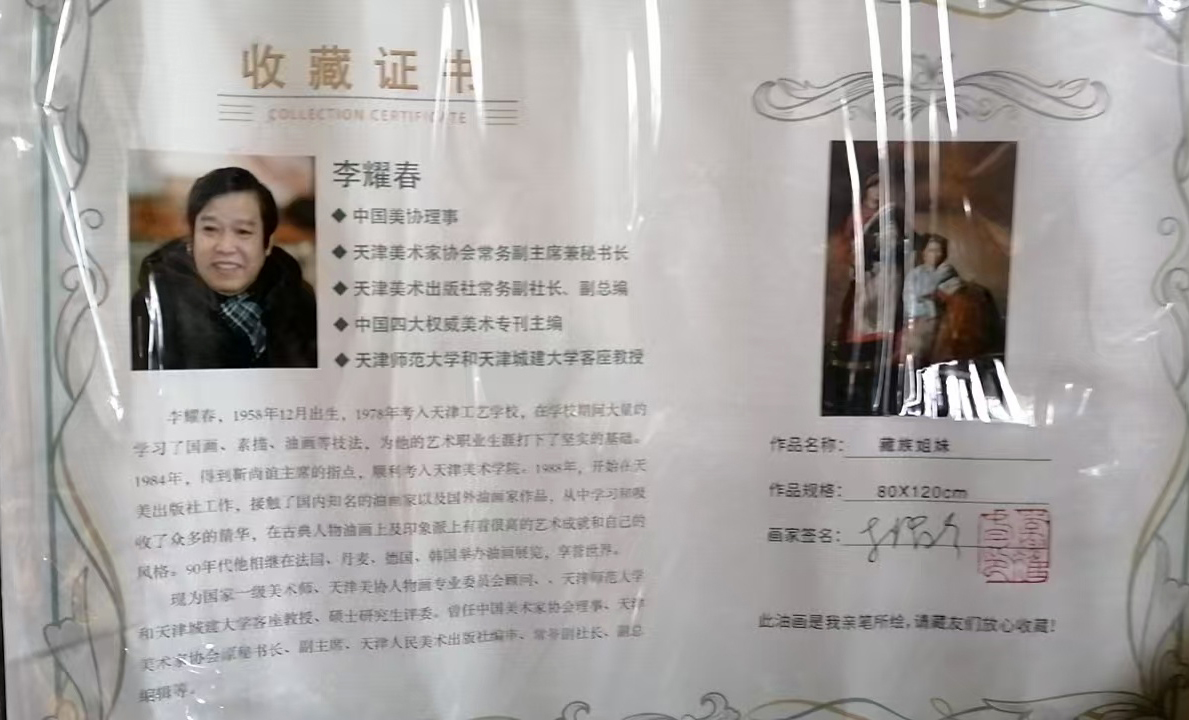 收藏证书
COLLECTION CERTIFICATE
李耀春
◆ 中国美协理事
◆ 天津美术家协会常务副主席兼秘书长
◆ 天津美术出版社常务副社长、副总编
◆ 中国四大权威美术专刊主编
◆ 天津师范大学和天津城建大学客座教授
李耀春，1958年12月出生，1978年考入天津工艺学校，在学校期间大量的
学习了国画、素描、油画等技法，为他的艺术职业生涯打下了坚实的基础。
1984年，得到靳尚谊主席的指点，顺利考入天津美术学院。1988年，开始在天
美出版社工作，接触了国内知名的油画家以及国外油画家作品，从中学习和吸
收了众多的精华，在古典人物油画上及印象派上有着很高的艺术成就和自己的
风格。90年代他相继在法国、丹麦、德国、韩国举办油画展览，享誉世界。
现为国家一级美术师、天津美协人物画专业委员会顾问、、天津师范大学
和天津城建大学客座教授、硕士研究生评委。曾任中国美术家协会理事、天津
美术家协会秘书长、副主席、天津人民美术出版社编审、常务副社长、副总
编辑等。
作品名称：藏族姐妹
作品规格：80X120cm
画家签名：
此油画是我亲笔所绘,请藏友们放心收藏!